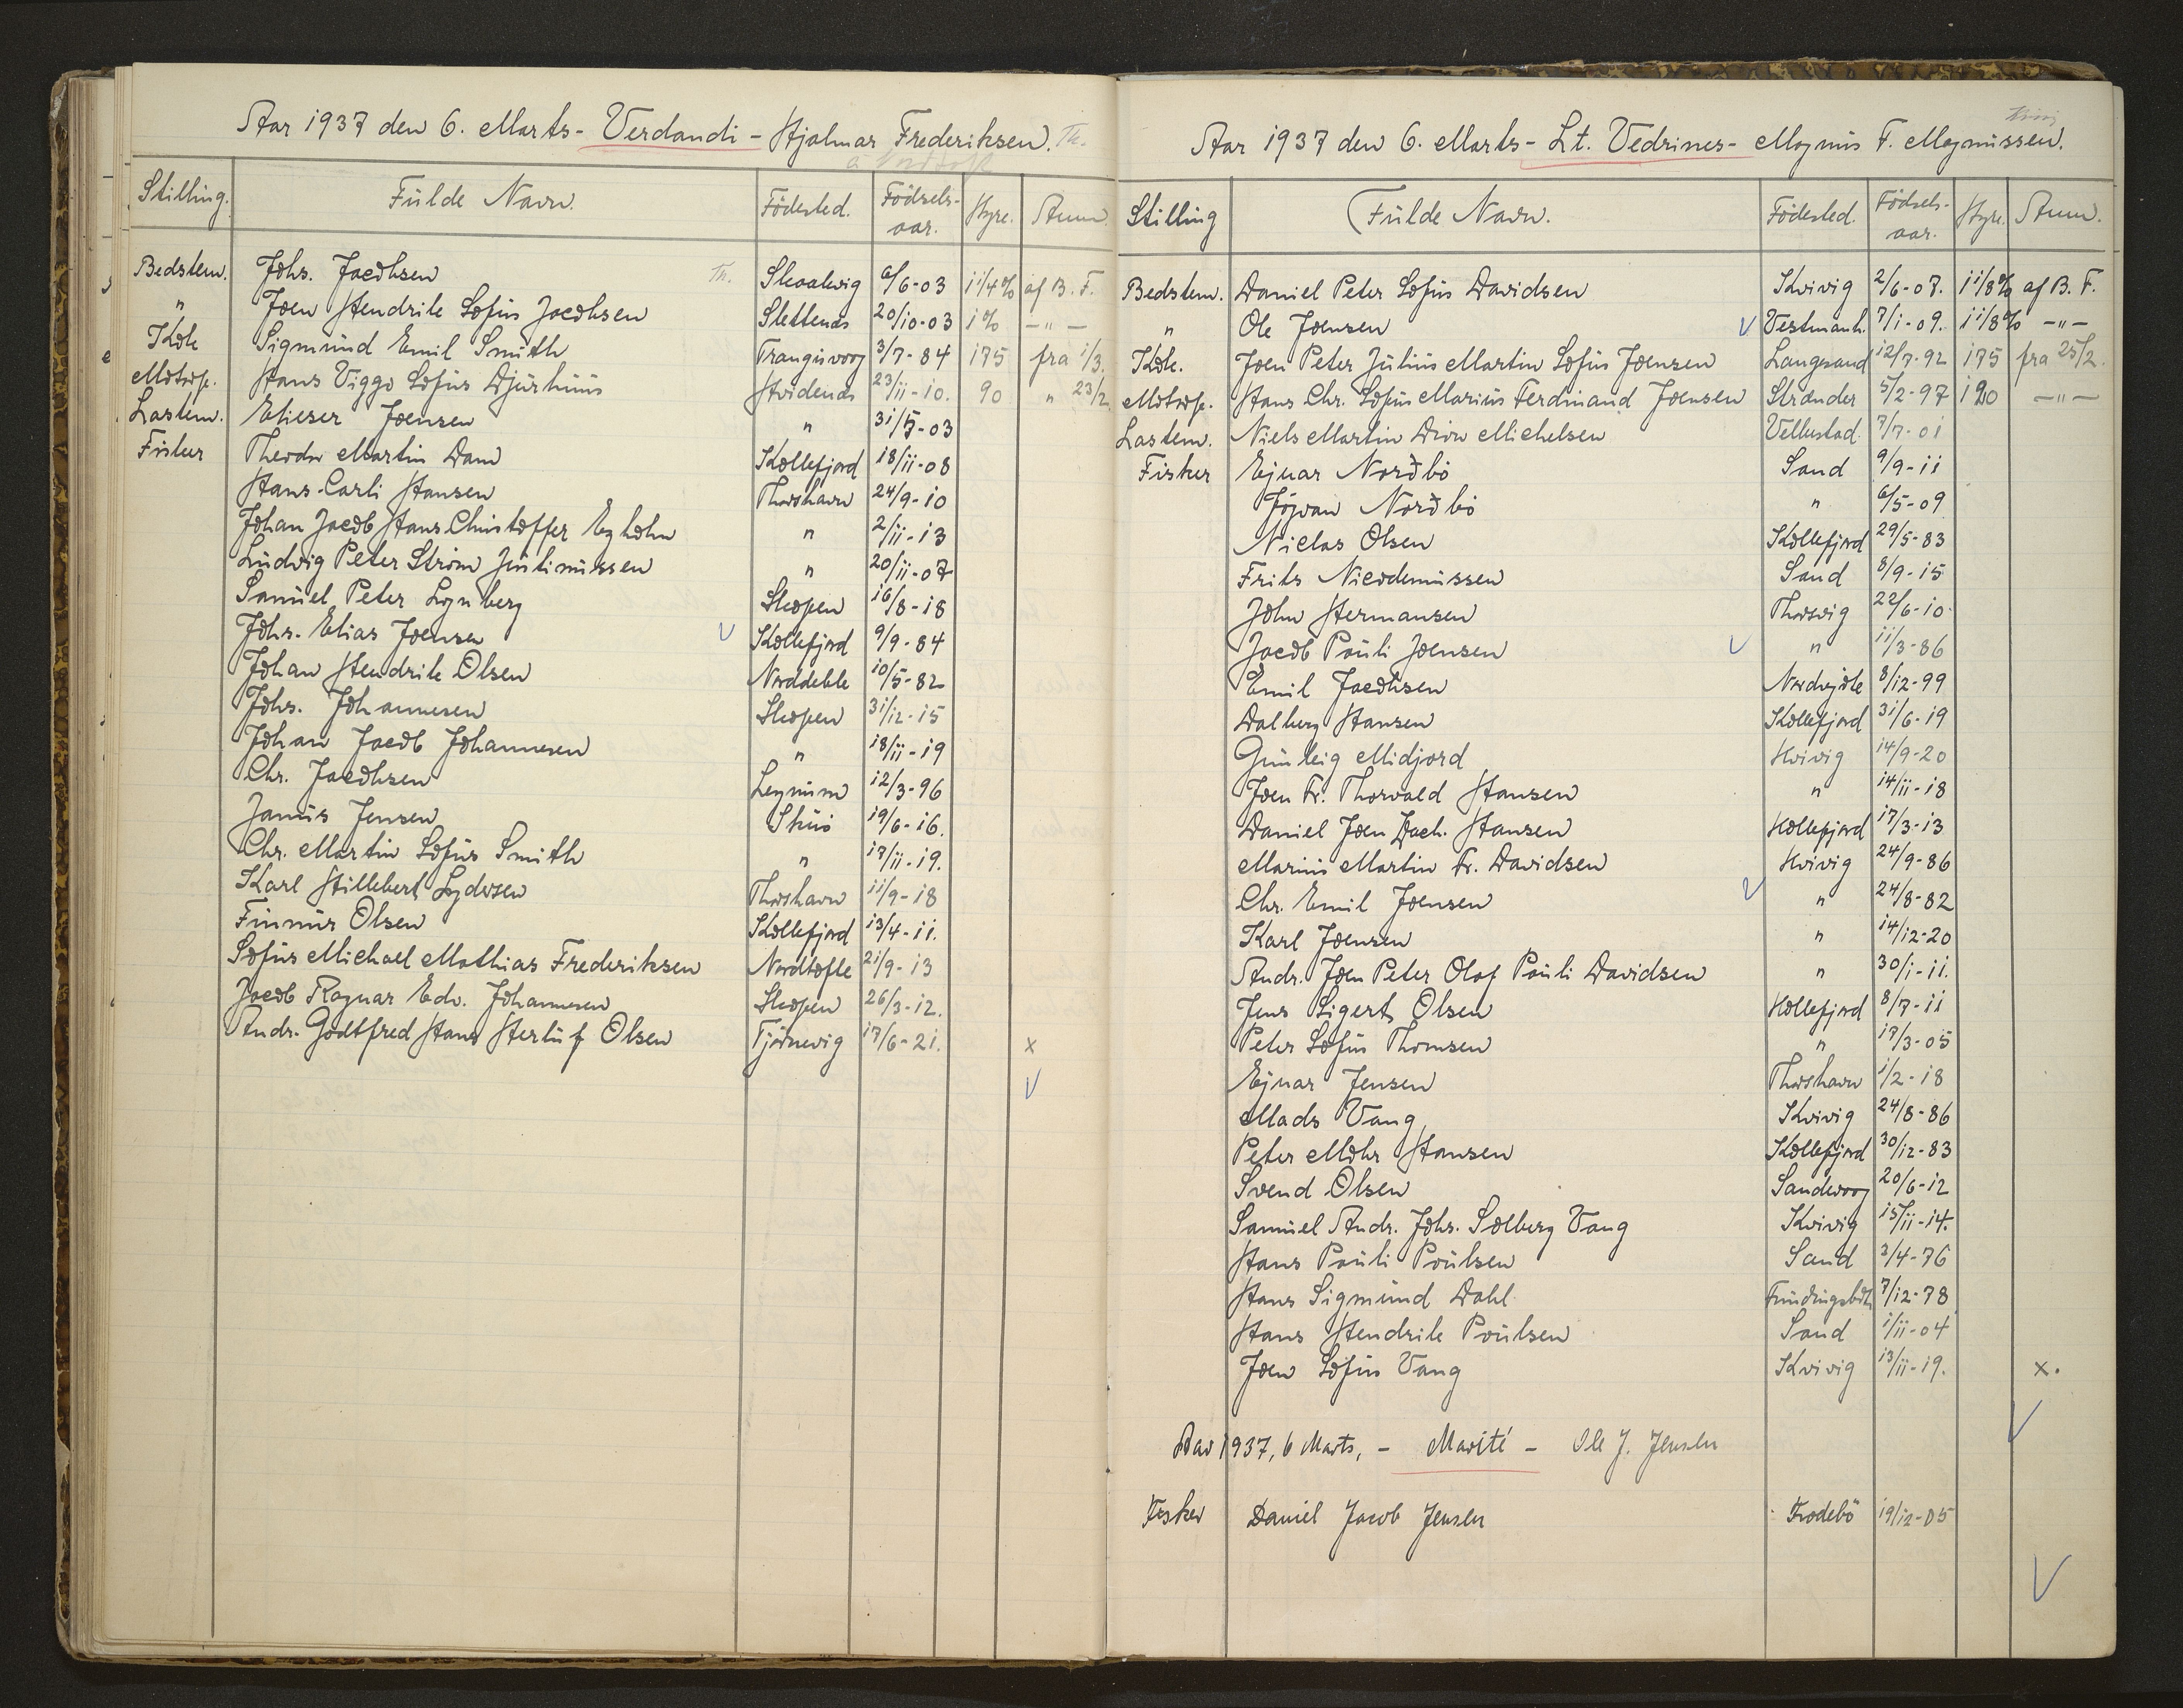 Aar 1937 den 6. Marts - Verdandi - Hjalmar Frederiksen. Th.
Stilling. Fulde Navn. Födested. Födsels-aar. Hyre. Anm.
Bedstem. Johs. Jacobsen Th. Skaalvig 6/6-03 1 1/4 % af B. F.
" Joen Hendrik Sofus Jacobsen Slettenæs 20/10-03 1% -"-
Kok Sigmund Emil Smith Trangisvaag 3/7-84 175 fra 1/3.
Motorp. Hans Viggo Sofus Djurhuus Hvidenæs 23/11-10. 90 " 23/2
Lastem. Elieser Joensen " 31/5-03
Fisker Theodor Martin Dam Kollefjord 18/11-08
Hans-Carli Hansen Thorshavn 24/9-10
Johan Jacob Hans Christoffer Egholm " 2/11-13
Ludvig Peter Ström Justinussen " 20/11-07
Samuel Peter Lynberg Skopen 16/8-18
Johs. Elias Joensen V Kollefjord 9/9-84
Johan Hendrik Olsen Norddeble 10/5-82
Johs. Johannesen Skopen 31/12-15
Johan Jacob Johannesen " 18/11-19
Chr. Jacobsen Leynum 12/3-96
Janus Jensen Skuo 19/6-16.
Chr. Martin Sofus Smith " 17/11-19.
Karl Hillebert Lydersen Thorshavn 11/9-18
Finnur Olsen Kollefjord 13/4-11.
Sofus Michael Mathias Frederiksen Nordtofte 21/9-13
Jacob Ragnar Edv. Johannesen Skopen 26/3-12.
Andr. Godtfred Hans Herluf Olsen Tjörnevig 17/6-21. x
V
Aar 1937 den 6. Marts - Lt. Vedrines - Magnus F. Magnussen.
Stilling Fulde Navn. Födested. Födsels-aar. Hyre. Anm.
Bedstem. Daniel Peter Sofus Davidsen Kvivig 2/6-07. 1 1/8% af B. F.
" Ole Joensen V Vestmanh. 7/1-09. 1 1/8% -"-
Kok. Joen Peter Julius Martin Sofus Joensen Langesand 12/7-92 175 fra 25/2.
Motorp. Hans Chr. Sofus Marius Ferdinand Joensen Strænder 5/2-97 120 -"-
Lastem. Niels Martin Dion Michelsen Vellestad 7/7-01
Fisker Ejnar Norðbö Sand 9/9-11
Jögvan Norðbö " 6/5-09
Niclas Olsen Kollefjord 29/5-83
Frits Nicodemussen Sand 8/9-15
John Hermansen Thorsvig 22/6-10.
Jacob Pauli Joensen V " 11/3-86
Emil Jacobsen Nordrejde 8/12-99
Dalberg Hansen Kollefjord 31/6-19
Gunleig Midjord Kvivig 14/9-20
Joen Fr. Thorvald Hansen " 14/11-18
Daniel Joen Zach. Hansen Kollefjord 17/3-13
Marius Martin Fr. Davidsen Kvivig 24/9-86
Chr. Emil Joensen V " 24/8-82
Karl Joensen " 14/12-20
Andr. Joen Peter Olaf Pauli Davidsen " 30/1-11.
Jens Sigert Olsen Kollefjord 8/7-11
Peter Sofus Thomsen " 17/3-05
Ejnar Jensen Thorshavn 1/2-18
Mads Vang Kvivig 24/8-86
Peter Mohr Hansen Kollefjord 30/12-83
Svend Olsen Sandevaag 20/6-12
Samuel Andr. Johs. Solberg Vang Kvivig 15/11-14.
Hans Pauli Poulsen Sand 3/4-76
Hans Sigmund Dahl Fundingsbotn 7/12-78
Hans Hendrik Poulsen Sand 1/11-04
Joen Sofus Vang Kvivig 13/11-19. x.
V
Aar 1937, 6 Marts, - Marité - Ole J. Jensen
Fisker Daniel Jacob Jensen Frodebö 19/12-05
V